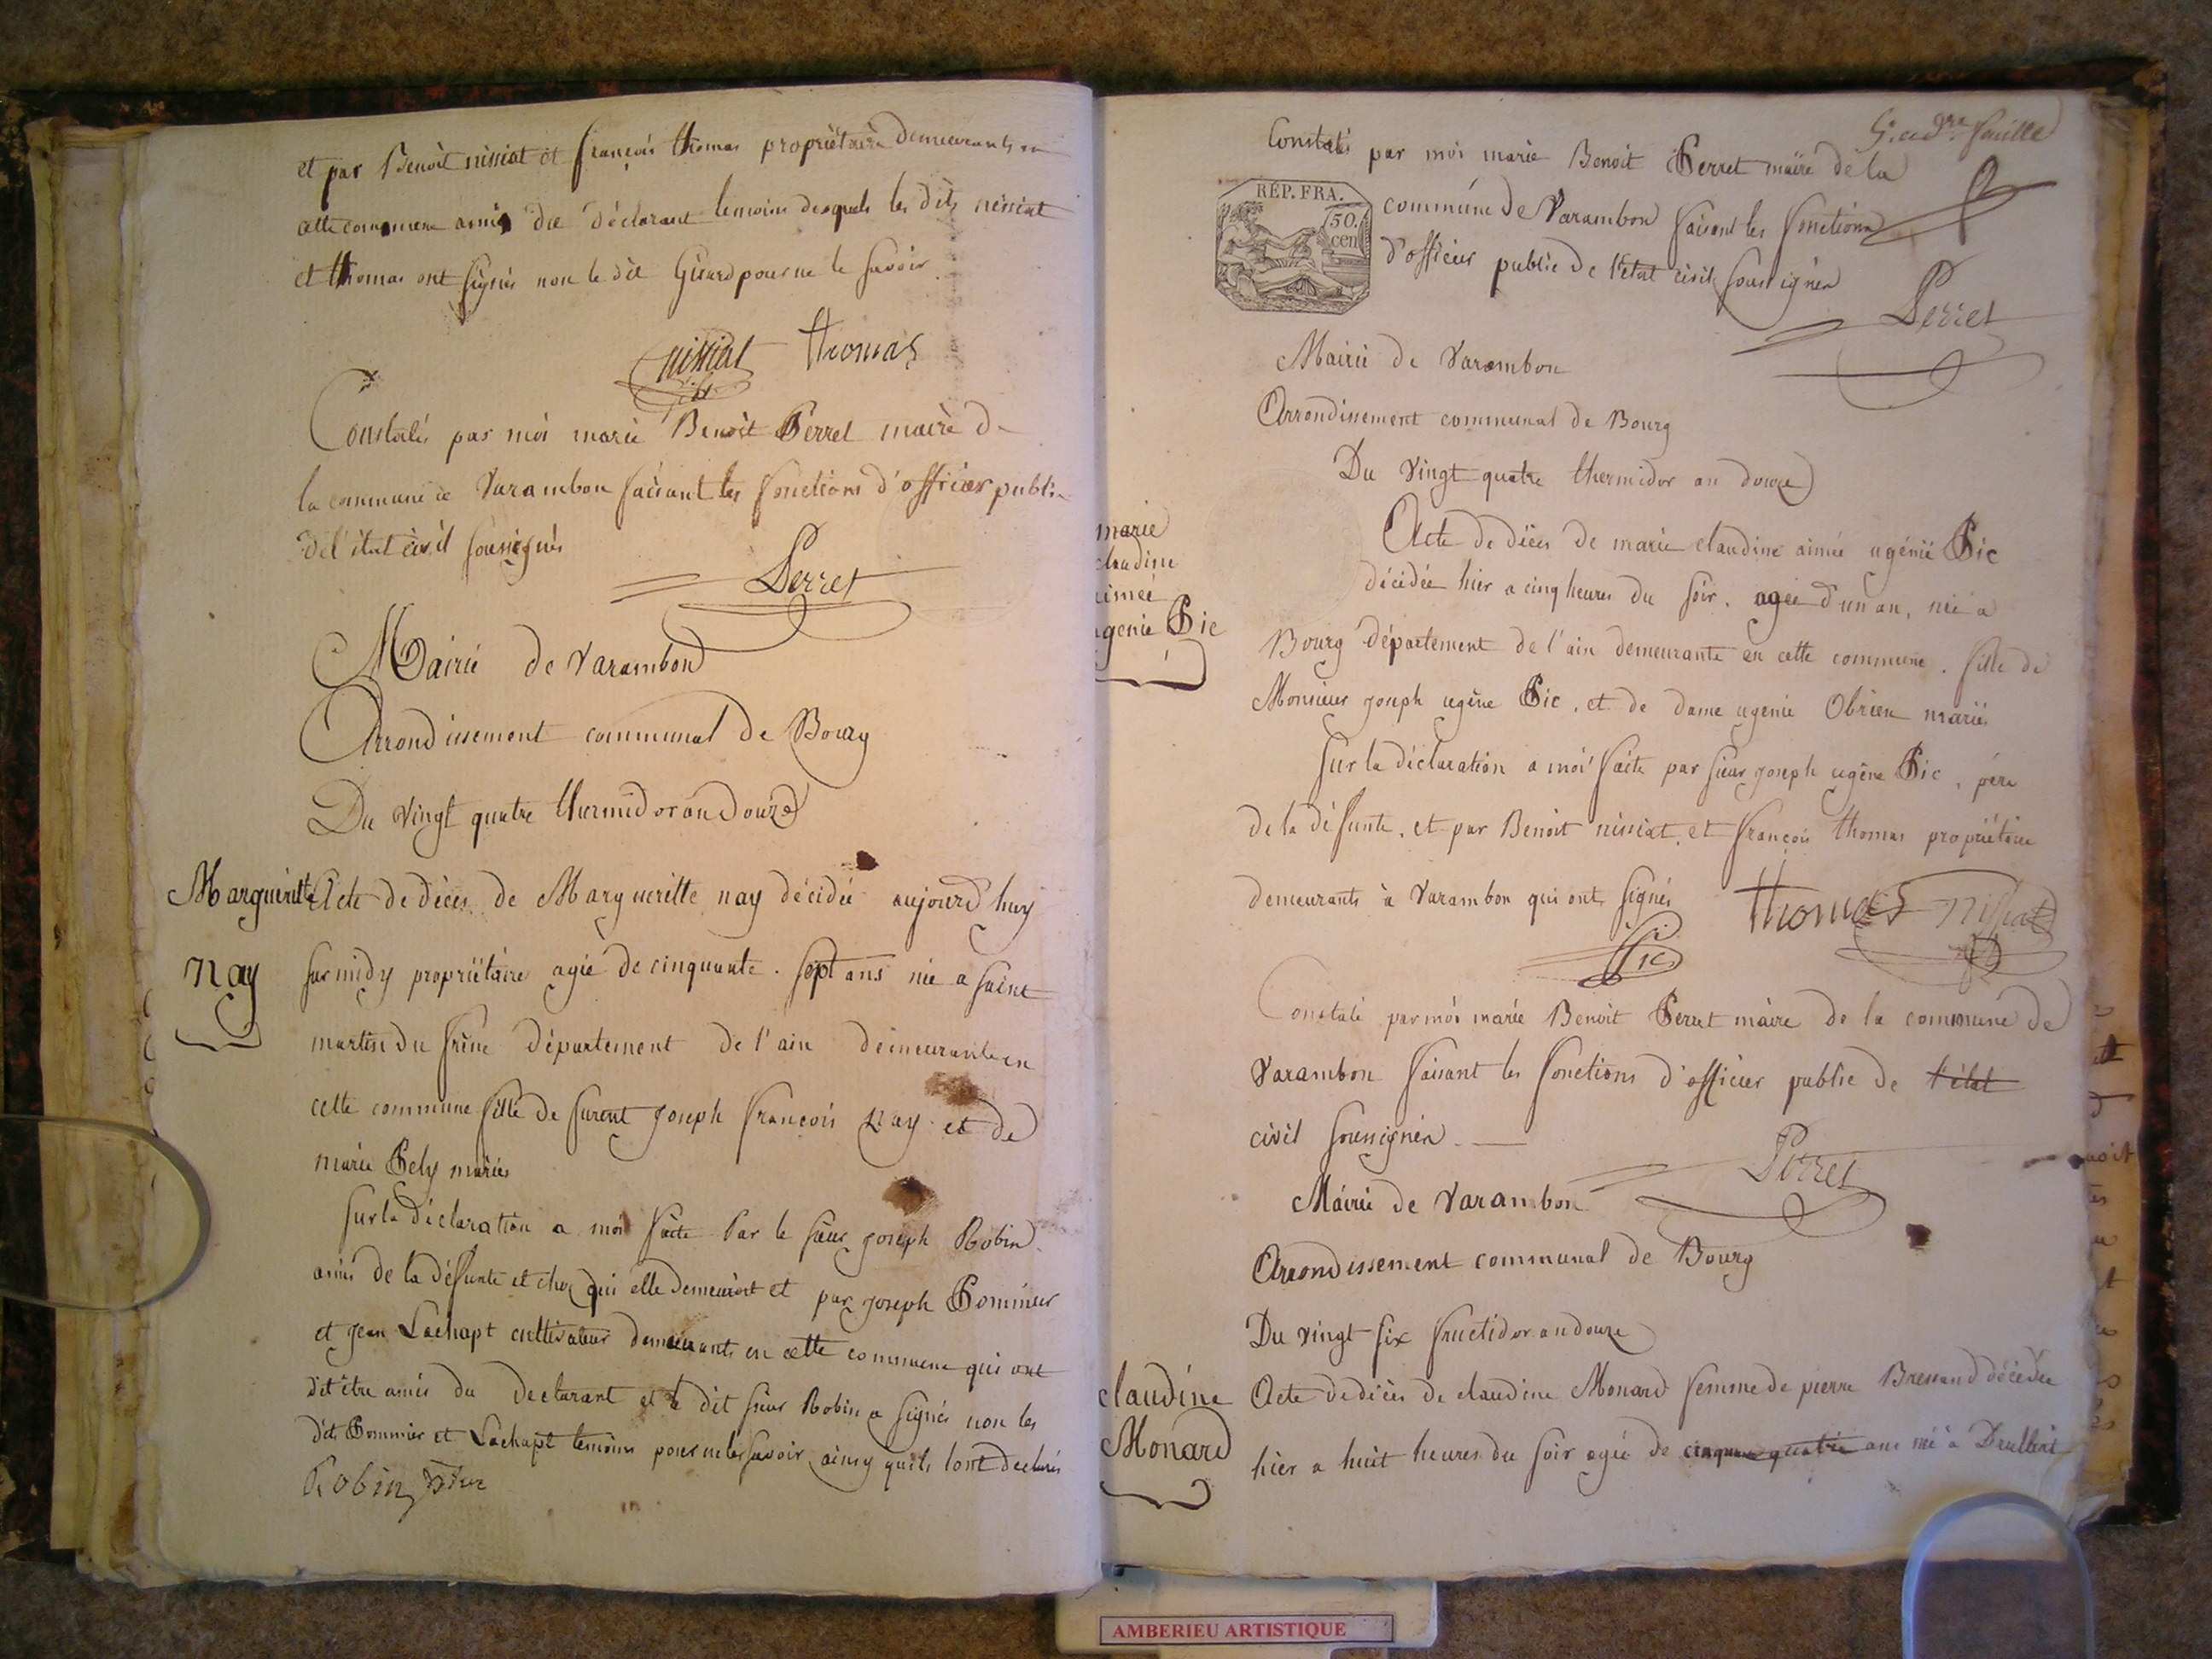 et par Benoit nissiat et françois thomas propriètaire demeurants en
cette commune amis du déclarant temoins desquels les dits nissiat
et thomas ont signés non le dit Girard pour ne le savoir
nissiat thomas
Constatés par moi marie Benoit Perret maire de
la commune de Varambon faisant les fonctions d'officier public
de l'état civil soussignés
Perret
Mairie de Varambon
Arrondissement communal de Bourg
Du vingt quatre thermidor an douze
Margueritte
nay
Acte de déces de Margueritte nay décédée aujourd'huy
sur midy propriétaire agée de cinquante-sept ans née a saint
martin du frène département de l'ain demeurante en
cette commune fille de furent joseph françois nay et de
marie Pely mariés
sur la déclaration a moi faite Par le sieur joseph Robin
amis de la défunte et chez qui elle demeuroit et par joseph Pommier
et jean Lachapt cultivateur demeurants en cette commune qui ont
dit être amis du declarant et le dit sieur Robin a signés non les
dits Pommier et Lachapt temoins pour ne les savoir ainsy quils lont declarés
Robin
feuille
Constatés par moi marie Benoit Perret maire de la
RÉP. FRA.
50.
cen
commune de Varambon faisant les fonctions
d'officier public de l'état civil soussignés
Perret
Mairie de Varambon
Arrondissement communal de Bourg
Du vingt quatre thermidor an douze
marie
claudine
aimée
ugenie Pic
Acte de déces de marie claudine aimée ugénie Pic
décédée hier a cinq heures du soir. agée d'un an, née a
Bourg département de l'ain demeurante en cette commune. fille de
Monsieur joseph ugène Pic, et de dame ugenie Obrien mariés
sur la déclaration a moi faite par sieur joseph ugène Pic, père
de la défunte, et par Benoit nissiat, et françois thomas propriétaire
demeurants à Varambon qui ont signés
thomas nissiat
Pic
Constaté par moi marie Benoit Perret maire de la commune de
Varambon faisant les fonctions d'officier public de l'état
civil soussignés
Perret
Mairie de Varambon
Arrondissement communal de Bourg
Du vingt-six fructidor an douze
claudine
Monard
Acte de déces de claudine Monard femme de pierre Bressand décédée
hier a huit heures du soir agée de cinquante quatre ans née à Druillat
AMBERIEU ARTISTIQUE